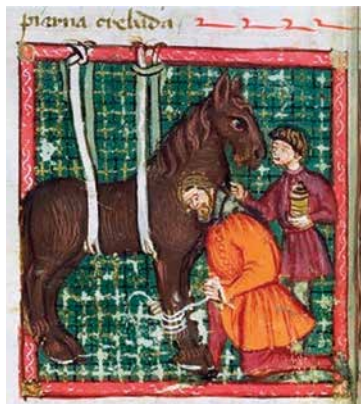 pierna crebada